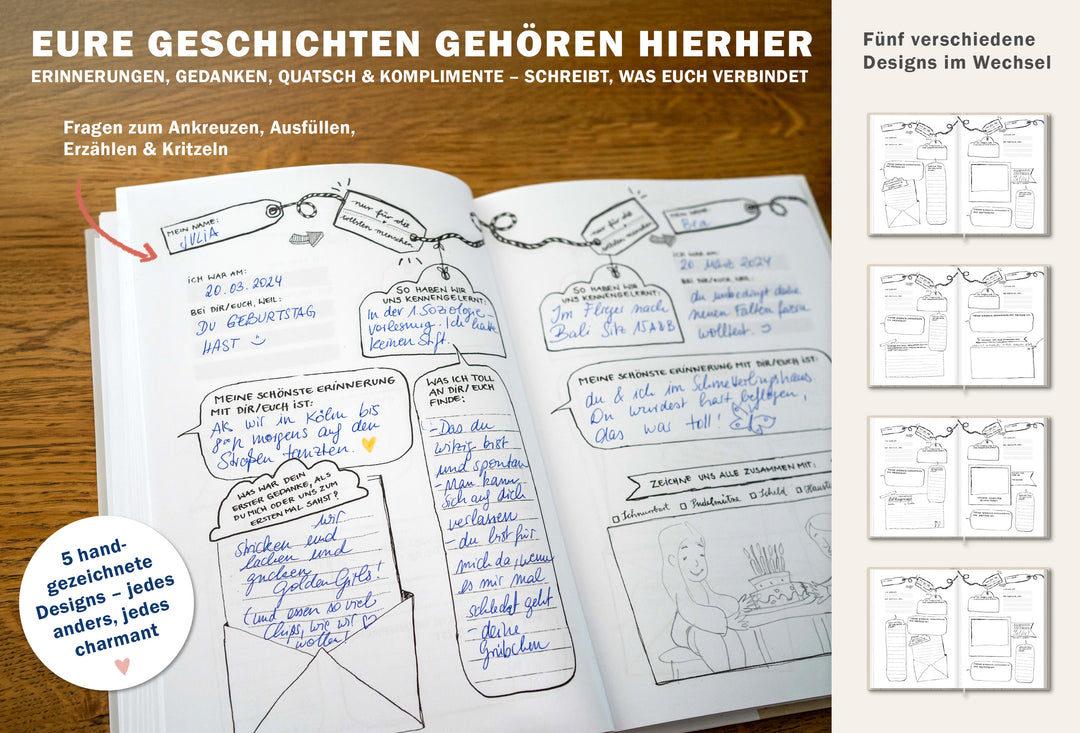 EURE GESCHICHTEN GEHÖREN HIERHER
ERINNERUNGEN, GEDANKEN, QUATSCH & KOMPLIMENTE – SCHREIBT, WAS EUCH VERBINDET
Fragen zum Ankreuzen, Ausfüllen,
Erzählen & Kritzeln
MEIN NAME:
JULIA
nur für die
tollsten menschen
ICH WAR AM:
20.03.2024
BEI DIR/EUCH, WEIL:
DU GEBURTSTAG
HAST
SO HABEN WIR
UNS KENNENGELERNT:
In der 1. Soziologie-
vorlesung. Ich hatte
keinen Stift.
MEINE SCHÖNSTE ERINNERUNG
MIT DIR/EUCH IST:
Als wir in Köln bis
morgens auf den
Straßen tanzten.
WAS ICH TOLL
AN DIR/EUCH
FINDE:
- Das du
witzig bist
und spontan
- Man kann
sich auf dich
verlassen
- du bist für
mich da, wenn
es mir mal
schlecht geht
- deine
Grübchen
WAS WAR DEIN
ERSTER GEDANKE, ALS
DU MICH ODER UNS ZUM
ERSTEN MAL SAHST?
Wir
stricken und
lachen und
gucken
Golden Girls!
(und essen so viel
Chips, wie wir
wollen!
MEIN NAME:
Bea
nur für die
tollsten menschen
ICH WAR AM:
20 März 2024
BEI DIR/EUCH, WEIL:
du unbedingt deine
neuen Falten feiern
wolltest.
SO HABEN WIR
UNS KENNENGELERNT:
Im Flieger nach
Bali Sitz 15A&B
MEINE SCHÖNSTE ERINNERUNG MIT DIR/EUCH IST:
du & ich im Schmetterlingshaus.
Du wurdest fast beflogen,
das war toll!
ZEICHNE UNS ALLE ZUSAMMEN MIT:
Schnurbart
Pudelmütze
Schild
5 hand-
gezeichnete
Designs – jedes
anders, jedes
charmant
Fünf verschiedene
Designs im Wechsel